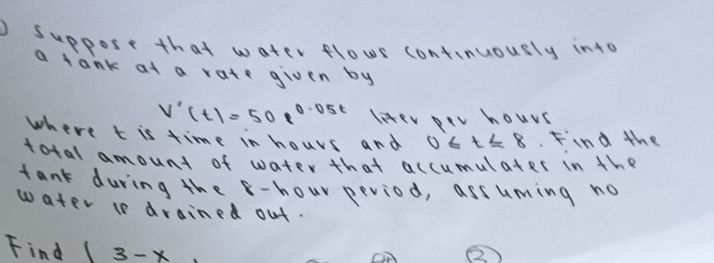 ) Suppose that water flows continuously into
a tank at a rate given by
V'(t) = 50 e^0.05t liter per hours
where t is time in hours and 0 ≤ t ≤ 8. Find the
total amount of water that accumulates in the
tank during the 8-hour period, assuming no
water is drained out.
Find ( 3-x